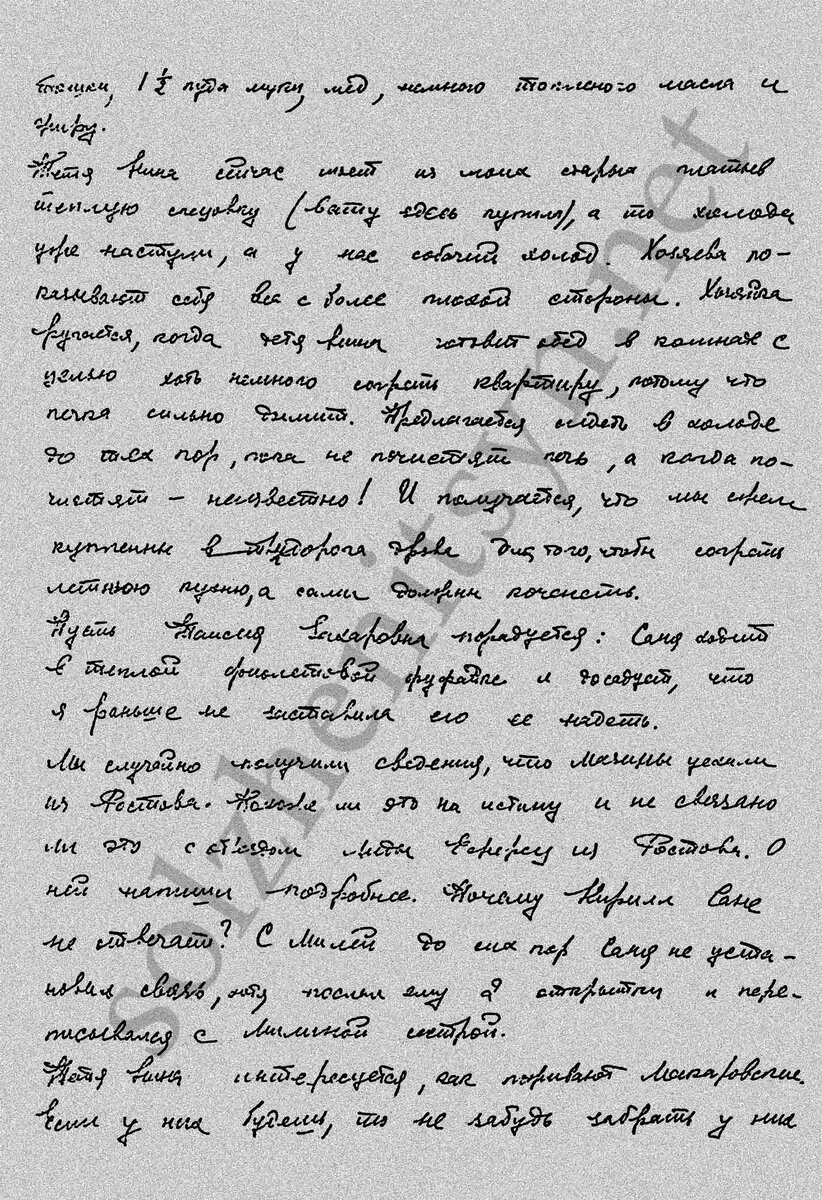 тошки, 1 ½ пуда муки, мёд, немного топленого масла и
жиру.
Тетя Нина сейчас шьет из моих старых платьев
теплую спецовку (вату здесь купили), а то холода
уже наступили, а у нас собачий холод. Хозяева по-
казывают себя все с более плохой стороны. Хозяйка
ругается, когда тетя Нина готовит обед в комнате с
целью хоть немного согреть квартиру, потому что
печка сильно дымит. Предлагается сидеть в холоде
до тех пор, пока не почистят печь, а когда по-
чистят – неизвестно! И получается, что мы жжем
купленные дорога дрова для того, чтобы согреть
летнюю кухню, а сами должны коченеть.
Пусть Таисия Захаровна порадуется: Саня ходит
в теплой фиолетовой фуфайке и досадует, что
я раньше не заставила его ее надеть.
Мы случайно получили сведения, что Мазины уехали
из Ростова. Похоже ли это на истину и не связано
ли это с отъездом Лиды Ежерец из Ростова. О
ней напиши подробнее. Почему Кирилл Сане
не отвечает? С Милей до сих пор Саня не уста-
новил связь, хотя послал ему 2 открытки и пере-
писывался с Милиной сестрой.
Тетя Нина интересуется, как поживают Макаровские.
Если у них будешь, то не забудь забрать у них
solzhenitsyn.net